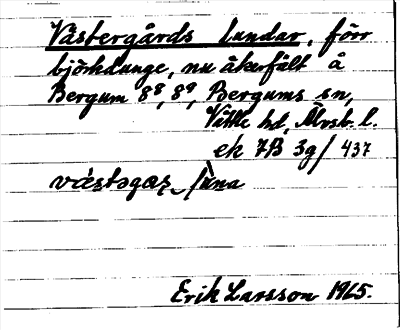 Västergårds lundar, förr
björkdunge, nu åkerfält å
Bergum 8⁸, 8⁹, Bergums sn,
Vättle hd, Älvsb. l.
ek 7B 3g/437
Erik Larsson 1965.